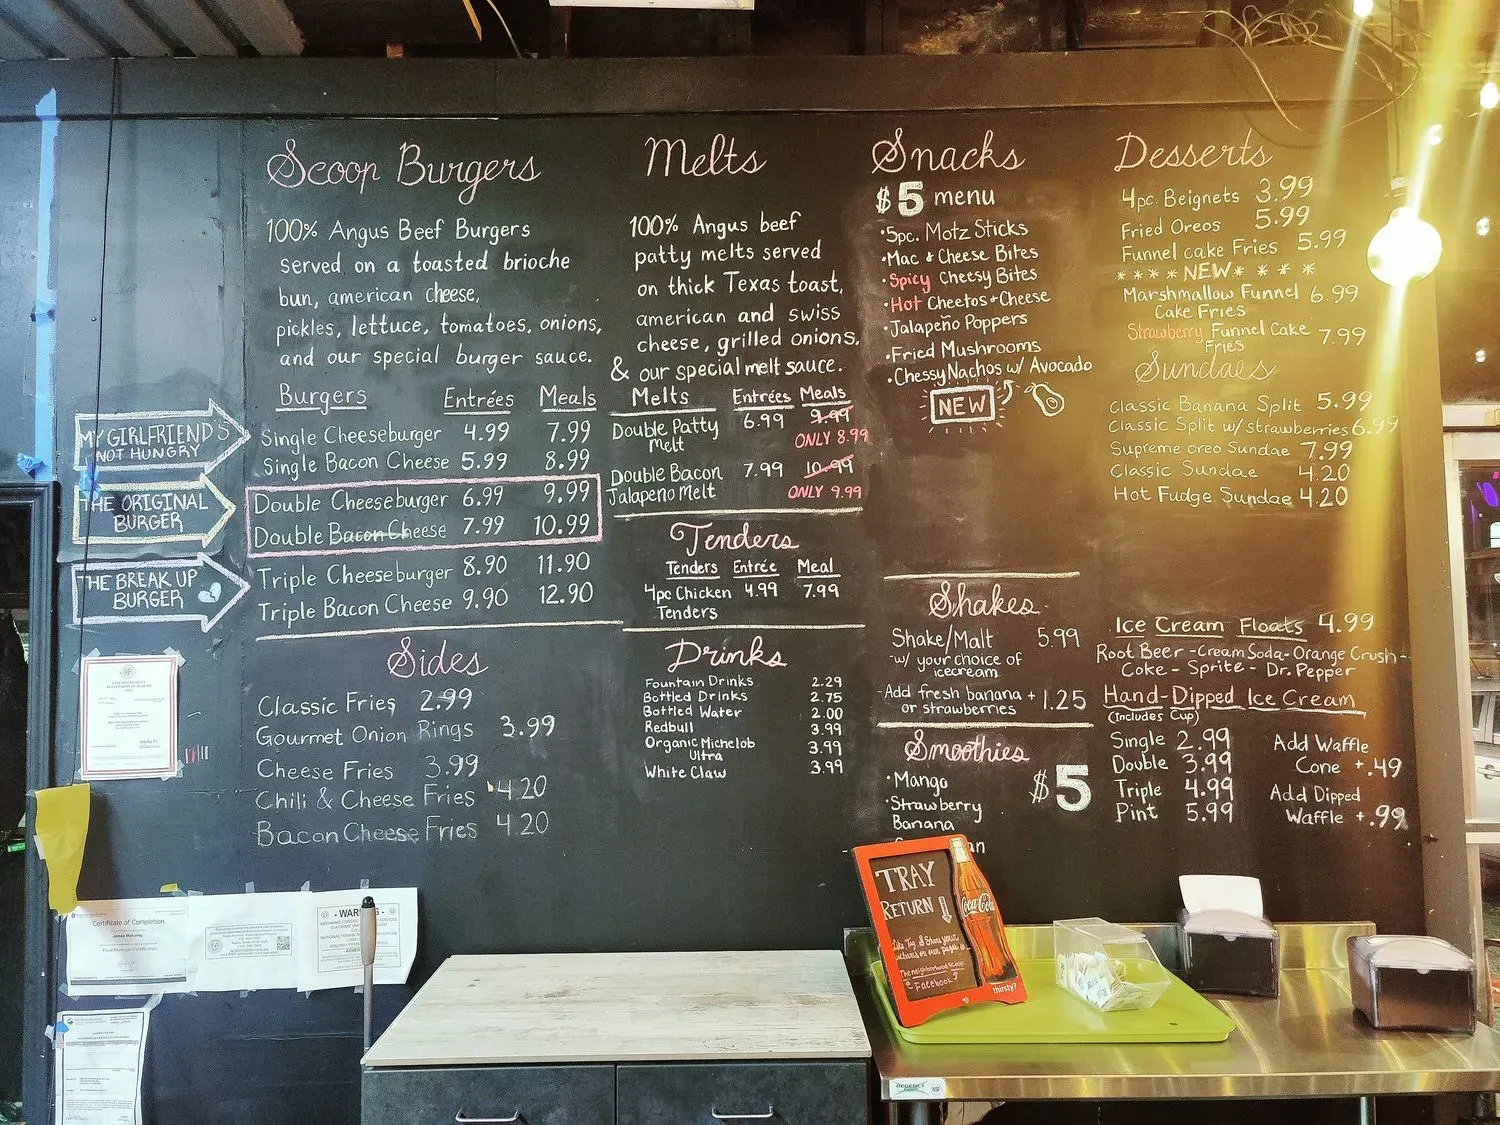 Scoop Burgers
100% Angus Beef Burgers
served on a toasted brioche
bun, american cheese,
pickles, lettuce, tomatoes, onions,
and our special burger sauce.
Burgers Entrées Meals
Single Cheeseburger 4.99 7.99
Single Bacon Cheese 5.99 8.99
Double Cheeseburger 6.99 9.99
Double Bacon Cheese 7.99 10.99
Triple Cheeseburger 8.90 11.90
Triple Bacon Cheese 9.90 12.90
MY GIRLFRIEND'S
NOT HUNGRY
THE ORIGINAL
BURGER
THE BREAK UP
BURGER
Sides
Classic Fries 2.99
Gourmet Onion Rings 3.99
Cheese Fries 3.99
Chili & Cheese Fries 4.20
Bacon Cheese Fries 4.20
Melts
100% Angus beef
patty melts served
on thick Texas toast,
american and swiss
cheese, grilled onions,
& our special melt sauce.
Melts Entrées Meals
Double Patty 6.99 9.99
Melt ONLY 8.99
Double Bacon 7.99 10.99
Jalapeno Melt ONLY 9.99
Tenders
Tenders Entrée Meal
4pc Chicken 4.99 7.99
Tenders
Drinks
Fountain Drinks 2.29
Bottled Drinks 2.75
Bottled Water 2.00
Redbull 3.99
Organic Michelob 3.99
Ultra
White Claw 3.99
Snacks
$5 menu
•5pc. Motz Sticks
•Mac & Cheese Bites
•Spicy Cheesy Bites
•Hot Cheetos+Cheese
•Jalapeño Poppers
•Fried Mushrooms
•Chessy Nachos w/ Avocado
NEW
Shakes
Shake/Malt 5.99
-w/ your choice of
icecream
-Add fresh banana +1.25
or strawberries
Smoothies
•Mango $5
•Strawberry
Banana
Desserts
4pc. Beignets 3.99
Fried Oreos 5.99
Funnel cake Fries 5.99
****NEW****
Marshmallow Funnel 6.99
Cake Fries
Strawberry Funnel Cake 7.99
Fries
Sundaes
Classic Banana Split 5.99
Classic Split w/ strawberries 6.99
Supreme oreo Sundae 7.99
Classic Sundae 4.20
Hot Fudge Sundae 4.20
Ice Cream Floats 4.99
Root Beer - Cream Soda - Orange Crush -
Coke - Sprite - Dr. Pepper
Hand-Dipped Ice Cream
(Includes Cup)
Single 2.99
Double 3.99
Triple 4.99
Pint 5.99
Add Waffle
Cone +.49
Add Dipped
Waffle +.99
TRAY
RETURN
Coca-Cola
thirsty?
Facebook
Certificate of Completion
Food Manager Certification
REGENCY
NSF